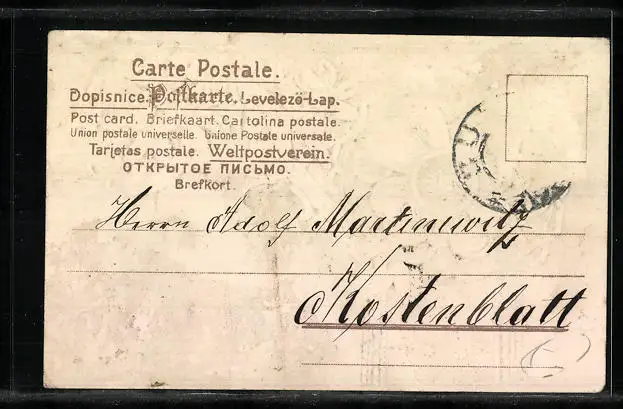 Carte Postale.
Dopisnice. Postkarte. Levelező-Lap.
Post card. Briefkaart. Cartolina postale.
Union postale universelle. Unione Postale universale.
Tarjetas postale. Weltpostverein.
ОТКРЫТОЕ ПИСЬМО.
Brefkort.
Herrn Adolf Martinewitz
Kostenblatt